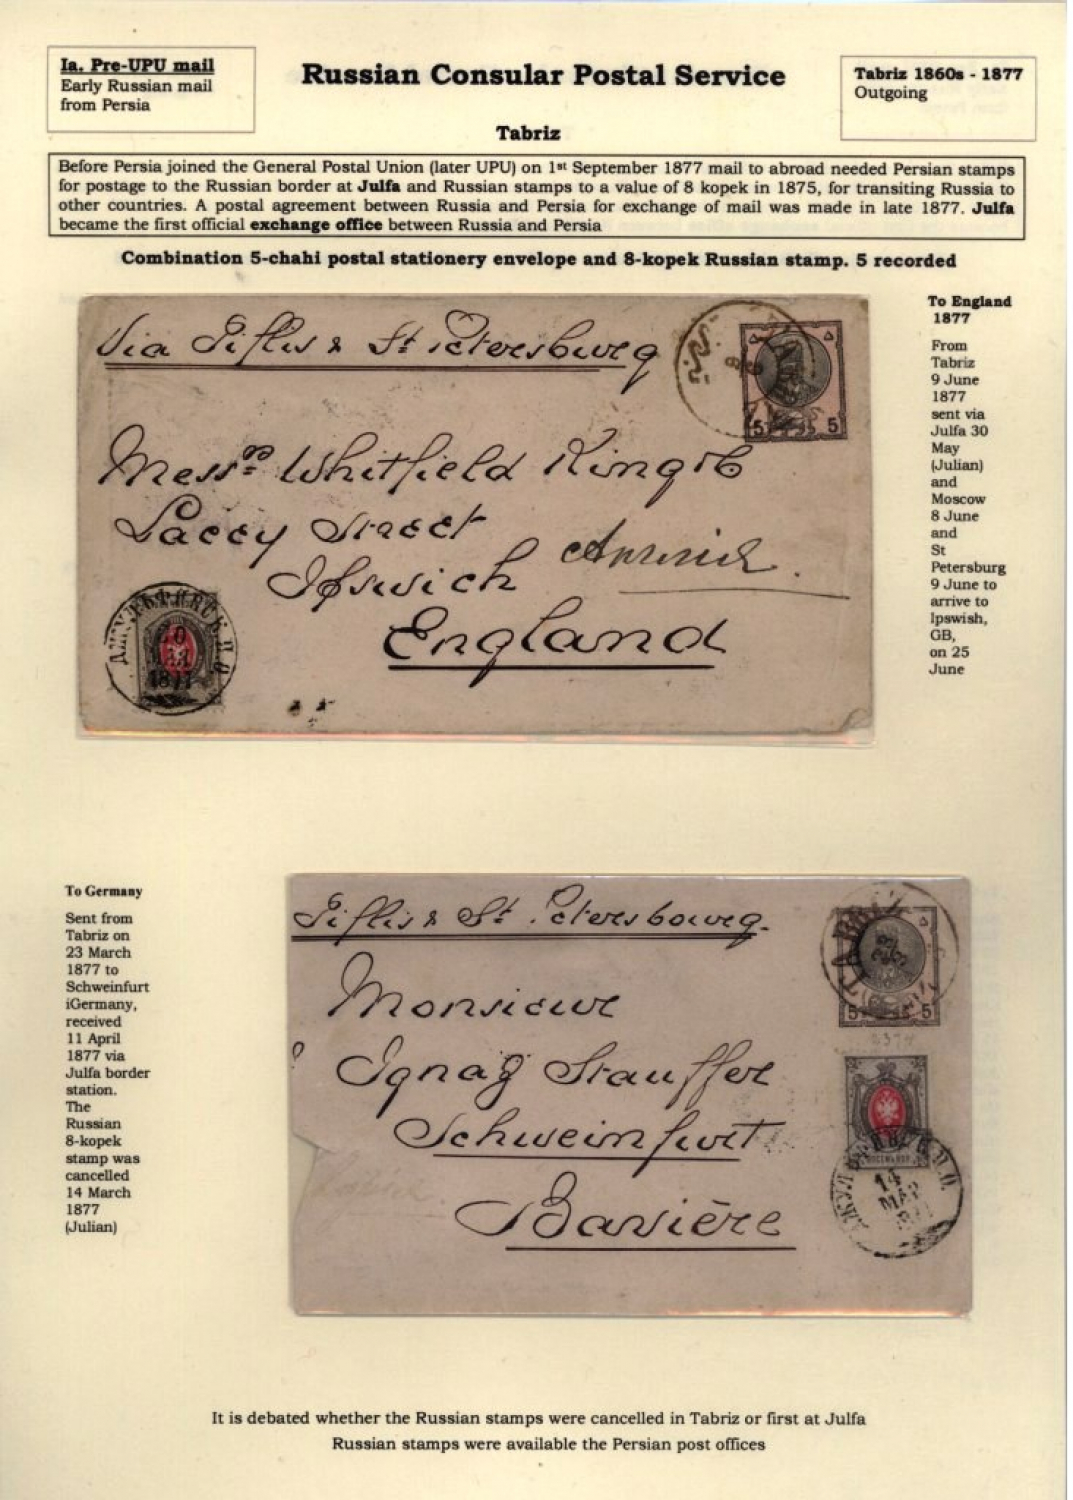 Ia. Pre-UPU mail
Early Russian mail
from Persia
Russian Consular Postal Service
Tabriz
Tabriz 1860s - 1877
Outgoing
Before Persia joined the General Postal Union (later UPU) on 1st September 1877 mail to abroad needed Persian stamps
for postage to the Russian border at Julfa and Russian stamps to a value of 8 kopek in 1875, for transiting Russia to
other countries. A postal agreement between Russia and Persia for exchange of mail was made in late 1877. Julfa
became the first official exchange office between Russia and Persia
Combination 5-chahi postal stationery envelope and 8-kopek Russian stamp. 5 recorded
Via Tiflis & St Petersburg
5 5
Messrs Whitfield King & Co
Lacey Street
Ipswich
England
1877
To England
1877
From
Tabriz
9 June
1877
sent via
Julfa 30
May
(Julian)
and
Moscow
8 June
and
St
Petersburg
9 June to
arrive to
Ipswish,
GB,
on 25
June
To Germany
Sent from
Tabriz on
23 March
1877 to
Schweinfurt
iGermany,
received
11 April
1877 via
Julfa border
station.
The
Russian
8-kopek
stamp was
cancelled
14 March
1877
(Julian)
Tiflis & St. Petersbourg.
TABRIZ
5 5
Monsieur
Ignaz Stauffer
Schweinfurt
Bavière
14
МАР
It is debated whether the Russian stamps were cancelled in Tabriz or first at Julfa
Russian stamps were available the Persian post offices